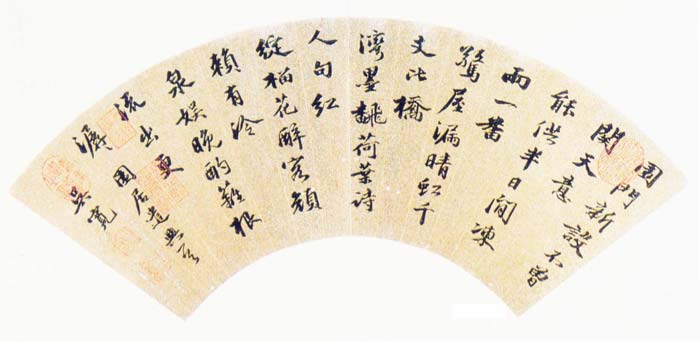 園門新設不曾
關天意
能供半日閒凍
雨一番
驚屋漏晴虹千
丈比橋
灣墨翻荷葉詩
人句紅
綻榴花醉客顏
賴有冷
泉娛晚酌籬根
流出更
潺 園居遣興
吳寬